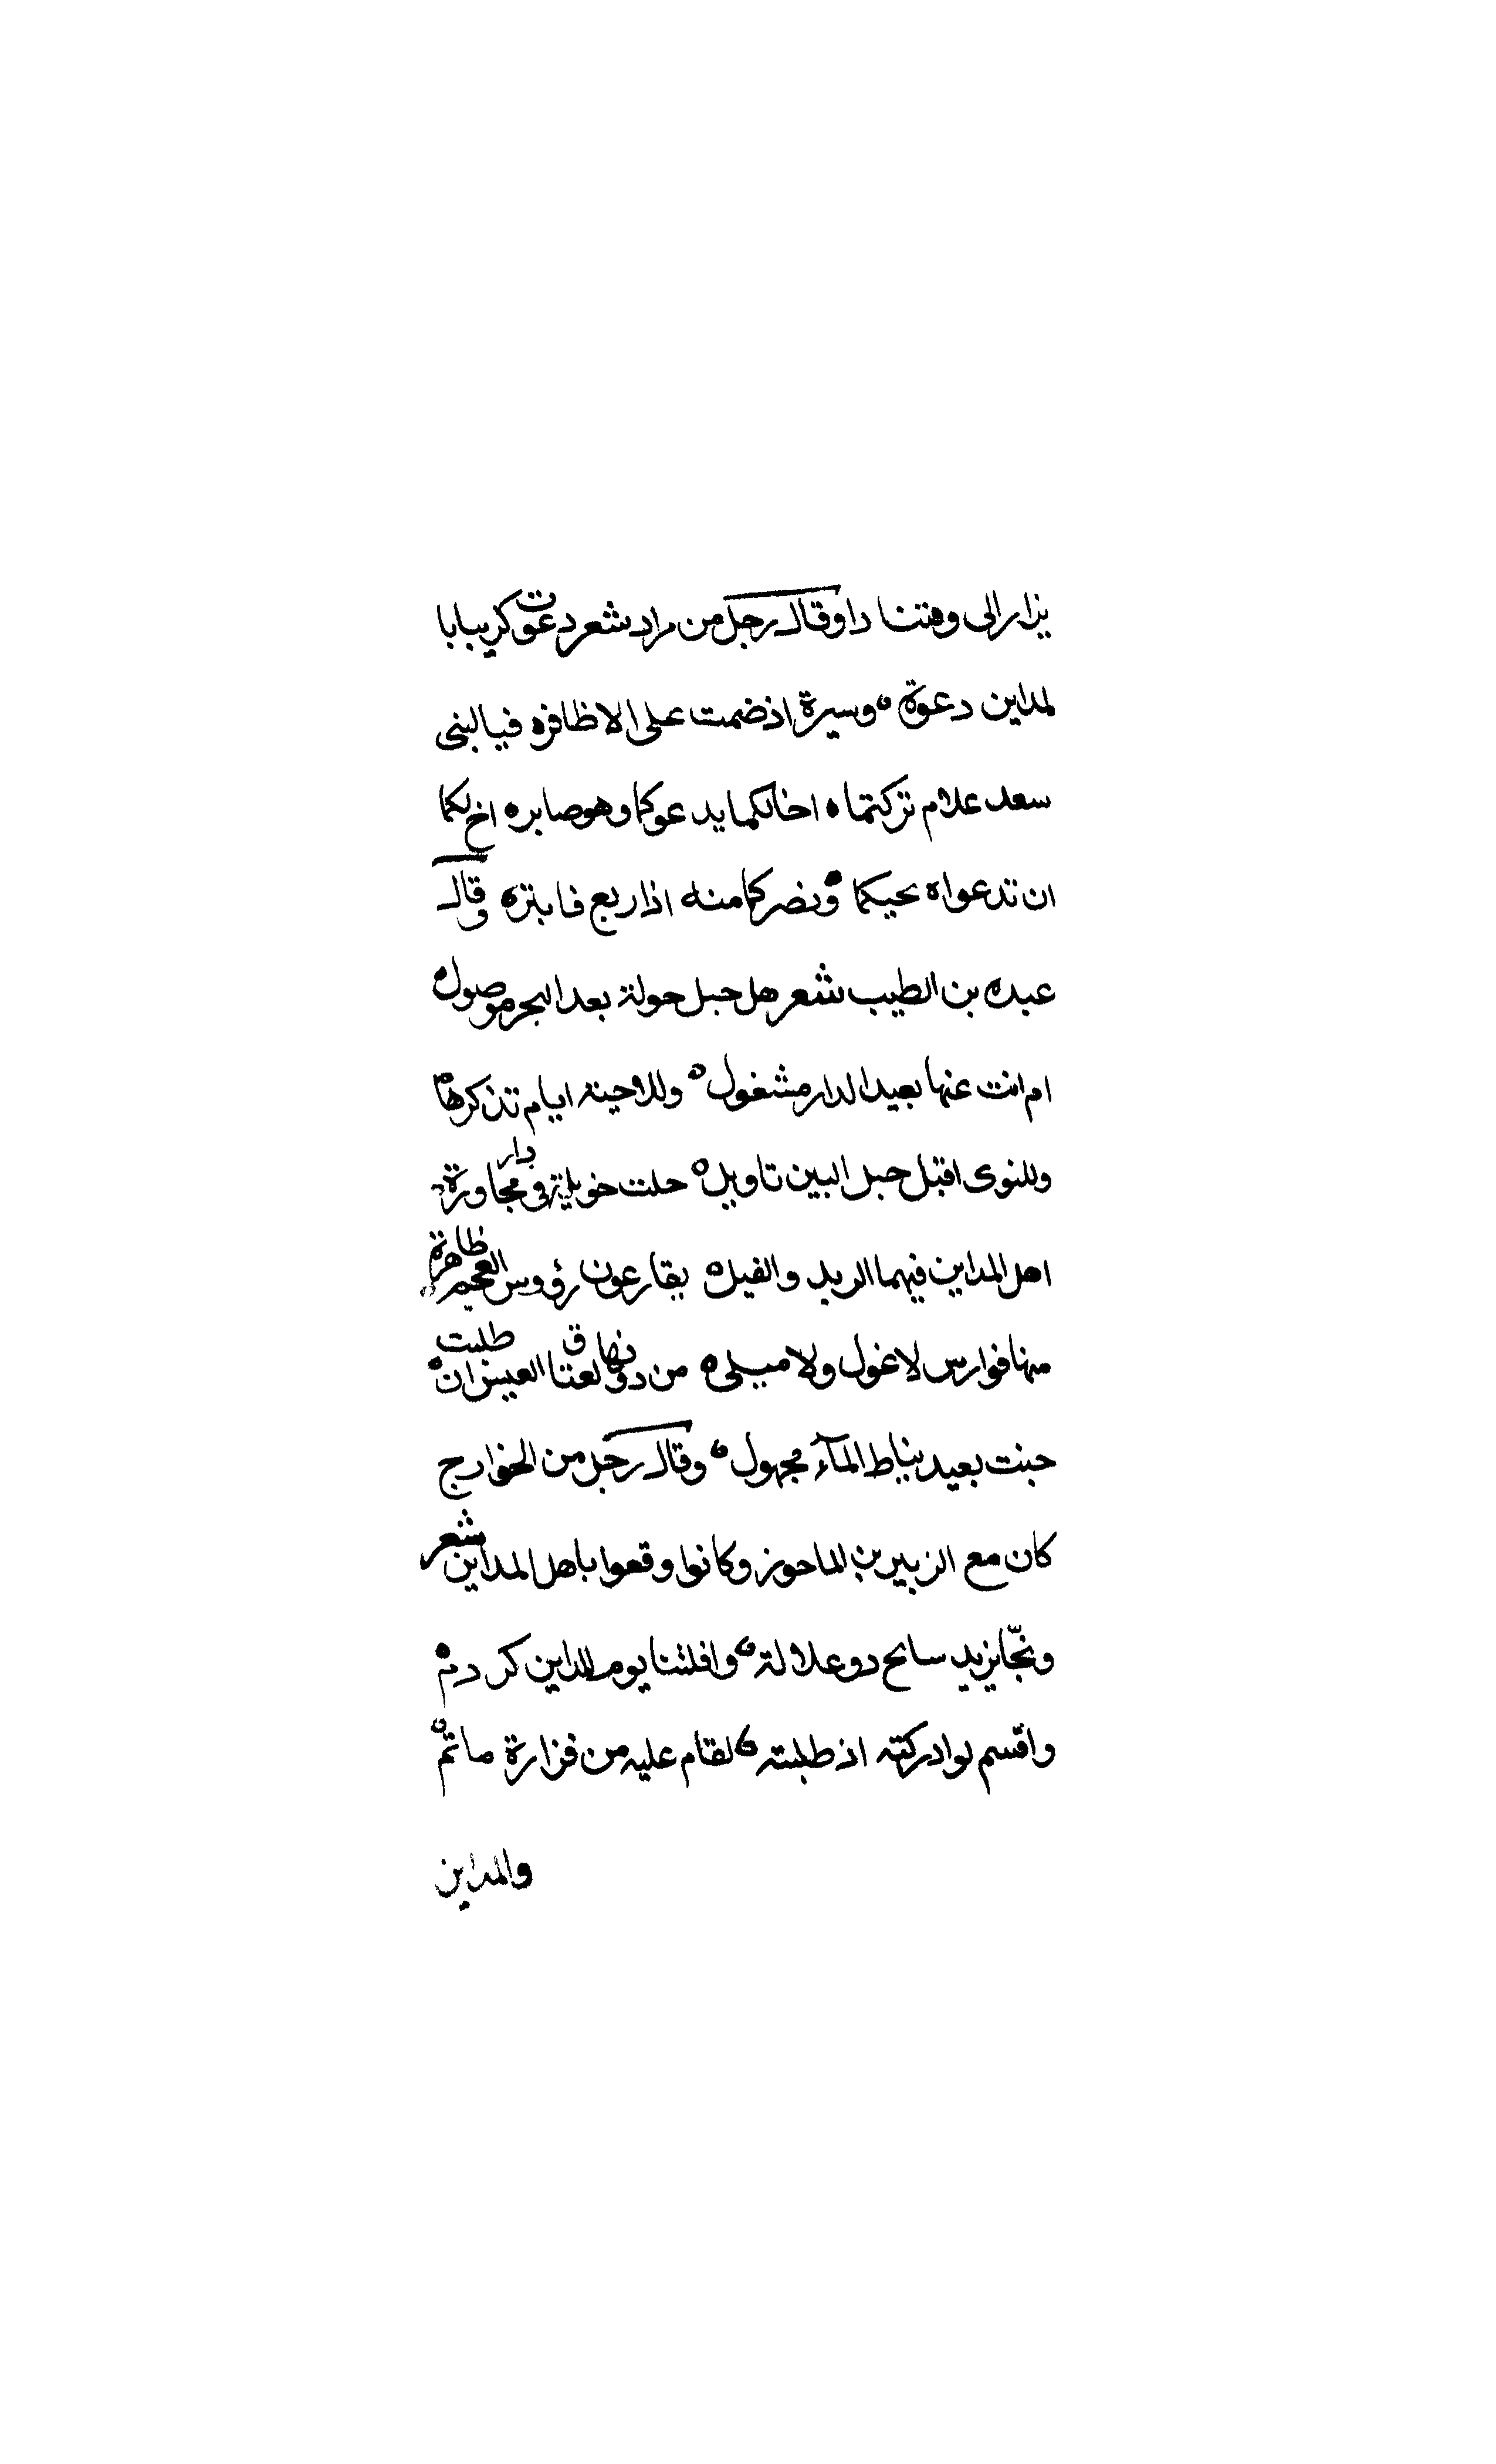 يزار الى وهتنا داوقال رجل من مراد شعر دعوت كريبا با
لمداين دعوة وسيرة اذ ضمت على الاظافره فيالبنى
سعد علام تركتماه اخا لكما يدعوكما وهو صابره اخ لكما
ان تدعواه يحيكما ونصركما منه اذا ريع فابتره وقال
عبده بن الطيب شعر هل حبل حولة بعد الهجر موصوله
ام انت عنها بعيد الدار مشغول وللاحينه ايام تذكرها
وللنوى اقتبل حبل البين تاويله حلت خويلة في دار مجاورة
اهل المداين فيهما الربد والفيله يقارعون رؤوس العجم ظاهرة
منها فوارس لاغول ولا ميله من دونها لعتاق العيس ان طلبت
حبنت بعيد نياط المآء مجهول وقال رجل من الخوارج
كان مع الزبير بن الماحوز وكانوا وقعوا باهل المداين شعر
ونجّا يزيد سابح دو علالة وافلتنا يوم المداين كردم
واقسم لوادركته اذ طلبته لقام عليه من فزارة ماتم
والمداين